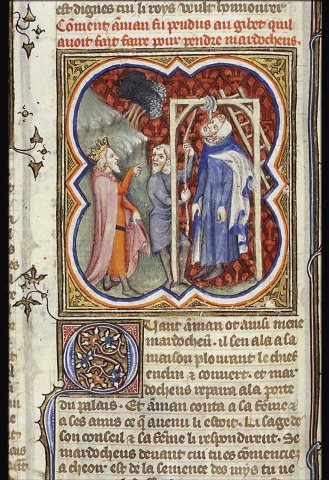 est dignes cui li roys veult honnourer
Coment aman fu pendus au gibet quil
avoit fait faire pour pendre mardocheus.
Quant aman ot ainsi mene
mardocheu. il sen ala a sa
maison plourant le chief
enclin & couvert. et mar
docheus repaira a la porte
du palais. Et aman conta a sa feme &
a ses amis ce quavenu li estoit. Li sage de
son conseil & sa feme li respondirent. Se
mardocheus devant cui tu es comencie
a cheoir est de la semence des iuys tu ne